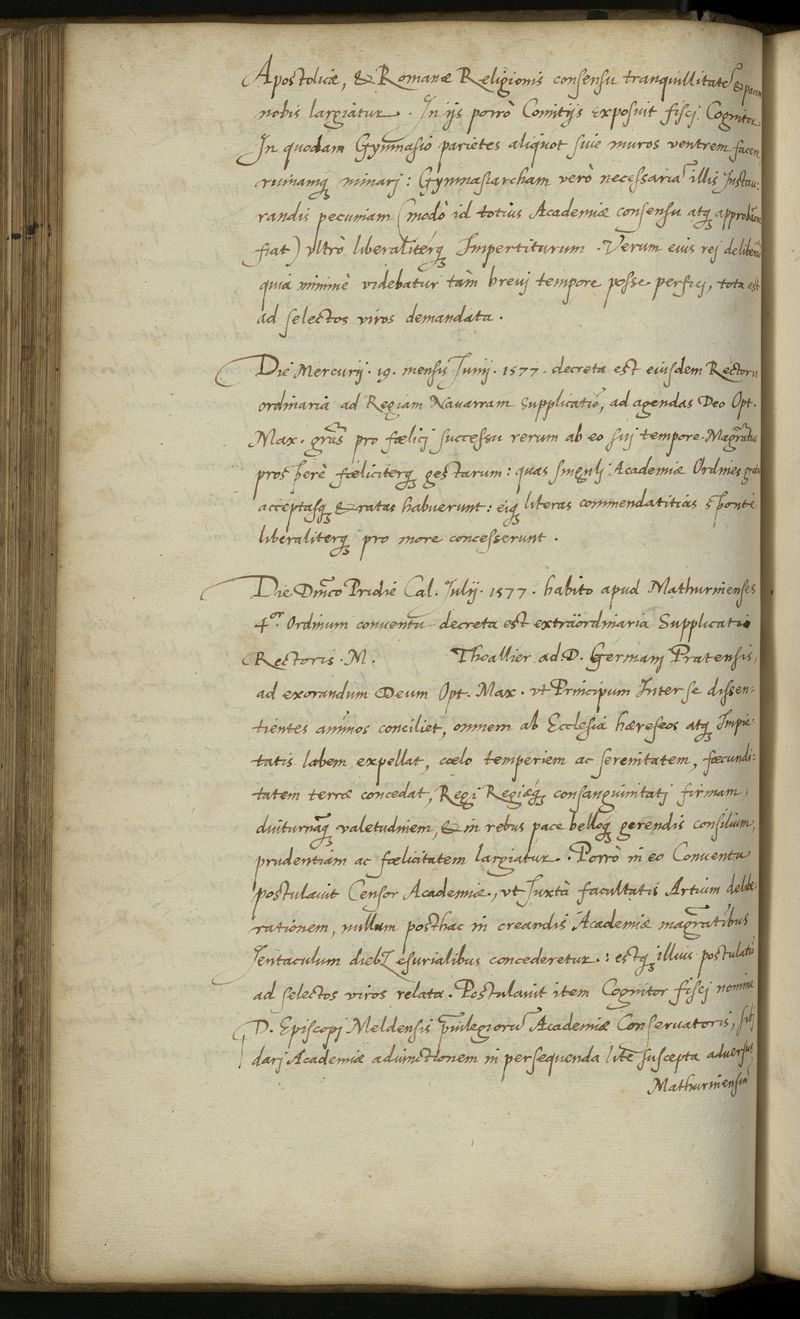 Apostolicæ, & Romanæ Religionis consensu tranquillitate & pacem
nobis largiatur. In ijs porrò Comitijs exposuit fisci Cognitor
In quodam Gymnasio parietes aliquot sive muros ventrem facere,
ruinamq minarj: Gymnasiarcham verò necessaria illis Instau-
randis pecuniam (modò id totius Academiæ consensu atq approbãone
fiat) vltrò liberalitérq Impertiturum. Verum eius rej deliberãõ
quia minimè videbatur tàm brevj tempore posse perficj, tota est
ad selectos viros demandata.
Die Mercurij. 19. mensis Junij. 1577. decreta est eiusdem Rectoris
ordinaria ad Regiam Navarram supplicatio, ad agendas Deo Opt.
Max. grãs pro fœlicj successu rerum ab eo suj tempore Magrãtus
prosperè fœliciterq gestarum: quas singulj Academiæ Ordines gratas
acceptasq & ratas habuerunt: eiq literas commendatitias spontè
liberaliterq pro more concesserunt.
Die Dnĩco Pridie Cal. Julij. 1577. habito apud Mathurinenses
4.or Ordinum conventu decreta est extraordinaria Supplicatio
Rectoris. M. Thoallier ad D. Germanj Pratensis,
ad exorandum Deum Opt. Max. vt Principum Inter se dissen-
tientes animos conciliet, omnem ab Ecclesiâ hæreseos atq Impie-
tatis labem expellat, cœlo temperiem ac serenitatem, fœcundi-
tatem terræ concedat, Regi Regiæq consanguinitatj firmam,
diuturnaq valetudinem, & in rebus pace belloq gerendis consilium,
prudentiam ac fœlicitatem largiatur. Porrò in eo Conventu
postulavit Censor Academiæ, vt Juxtà facultatis Artium delibe-
rationem, nullum posthac in creandis Academiæ magrãtibus
Jentaculum dieb esurialibus concederetur: estq illius postulatũ
ad selectos viros relata. Postulavit item Cognitor fisci nomine
D. Episcopj Meldensis privilegiorũ Academiæ Conservatoris, sibj
darj Academiæ adiunctionem in persequenda lite suscepta adversus
Mathurinensium